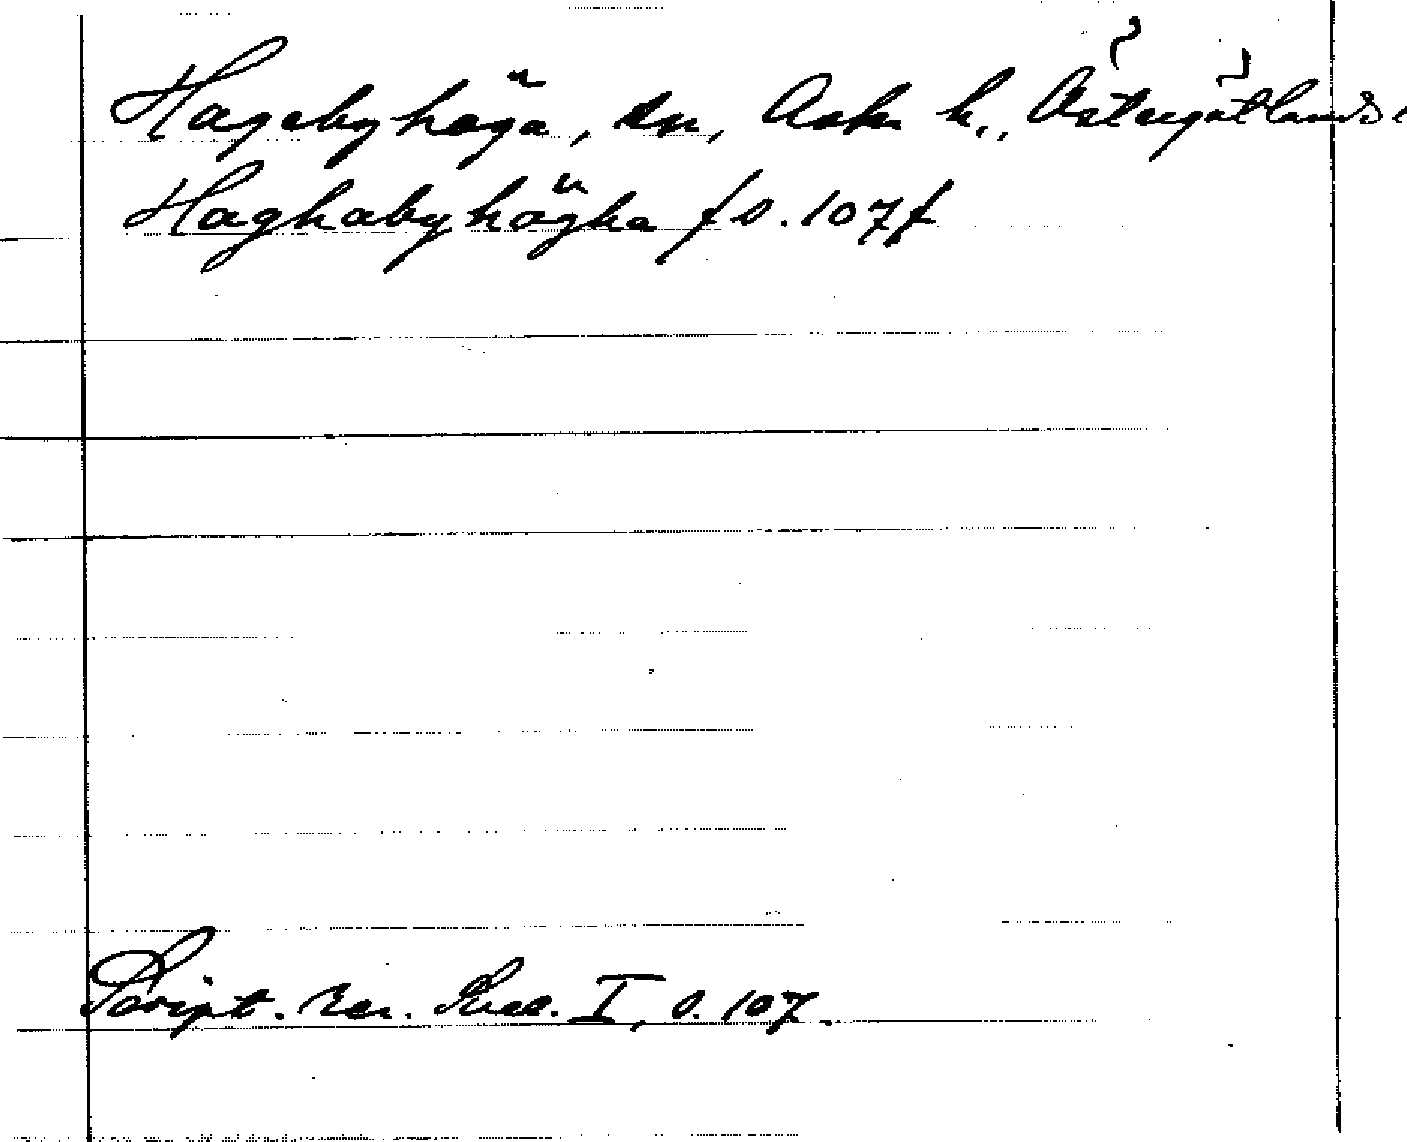 Hagebyhöga, sn, Aska h., Östergötlands l
Haghabyhögha f s. 107 f
Script. rer. Svec. I, s. 107.